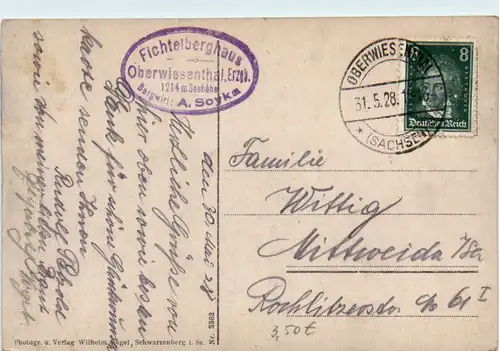 Fichtelberghaus
Oberwiesenthal, Erzgb.
1214 m Seehöhe
Bergwirt: A. Soyka
OBERWIESENTHAL
31.5.28.
* (SACHSEN)
8
Deutsches Reich
den 30. Mai 28
Herzliche Grüsse von
hier oben sowie besten
Dank für schöne
Karte senden Ihnen
Rudolf
sowie
Familie
Wittig
Mittweida i/Sa
Rochlitzerstr. 61 I
3,50 €
Photogr. u. Verlag Wilhelm Vogel, Schwarzenberg i. Sa. Nr. 3362